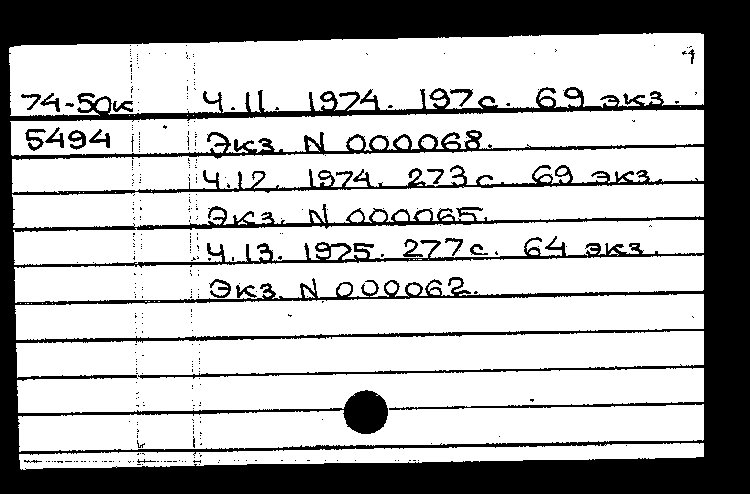 4
74-50к Ч.11. 1974. 197с. 69 экз.
5494 Экз. N 000068.
Ч.12. 1974. 273с. 69 экз.
Экз. N 000065.
Ч.13. 1975. 277с. 64 экз.
Экз. N 000062.